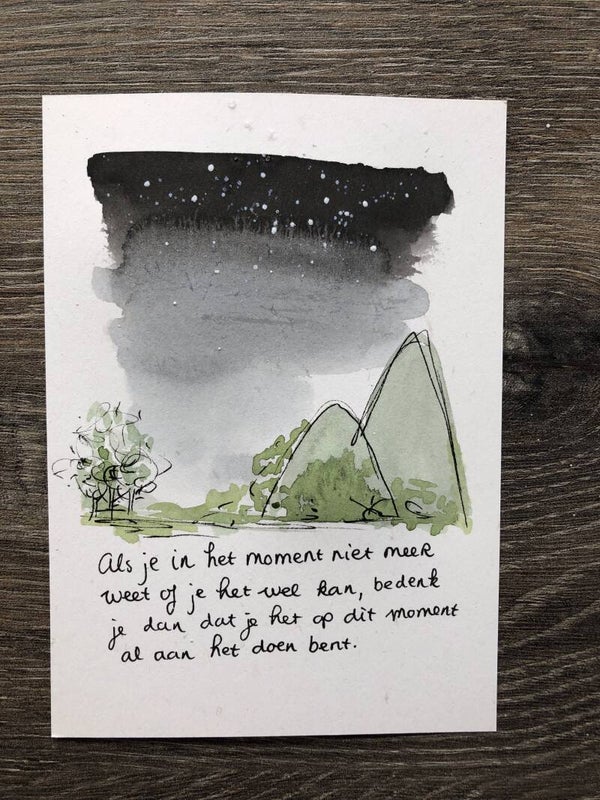 Als je in het moment niet meer
weet of je het wel kan, bedenk
je dan dat je het op dit moment
al aan het doen bent.